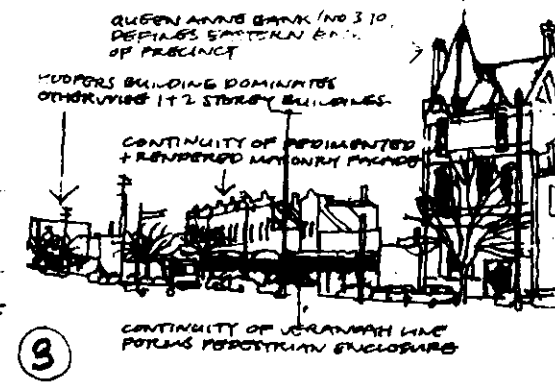 QUEEN ANNE BANK (NO 310
DEFINES EASTERN
OF PRECINCT
HOOPERS BUILDING DOMINATES
OTHERWISE 1+2 STOREY BUILDINGS.
CONTINUITY OF PEDIMENTED
+ RENDERED MASONRY FACADE
CONTINUITY OF VERANDAH LINE
FORMS PEDESTRIAN ENCLOSURE
3